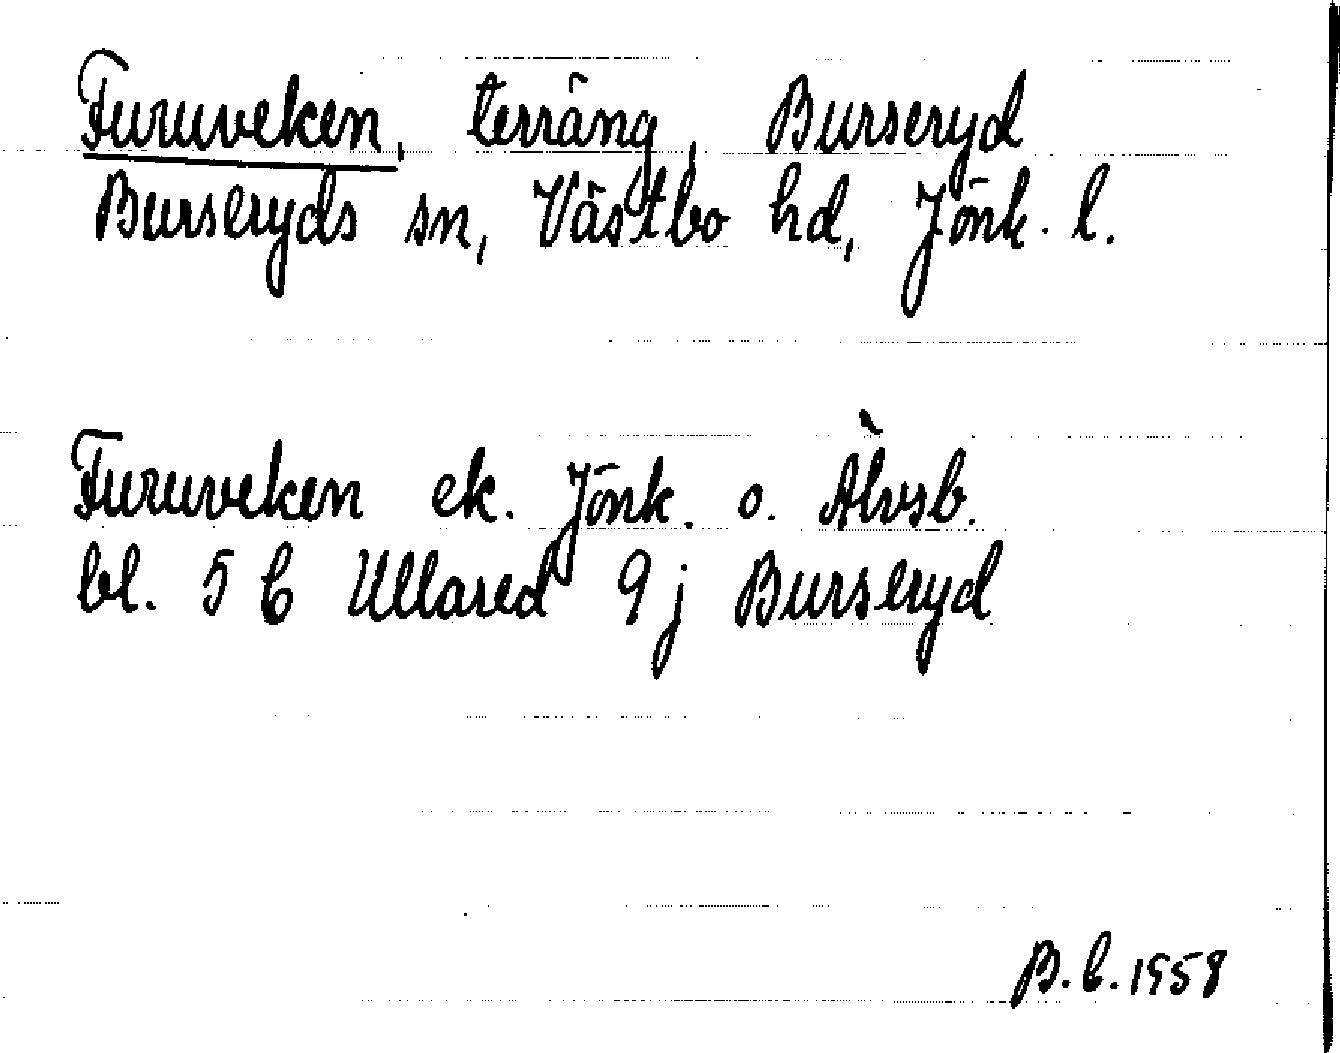 Furuveken, terräng, Burseryd
Burseryds sn, Västbo hd, Jönk. l.
Furuveken ek. Jönk. o. Älvsb.
bl. 5 C Ullared 9 j Burseryd
B.C. 1958